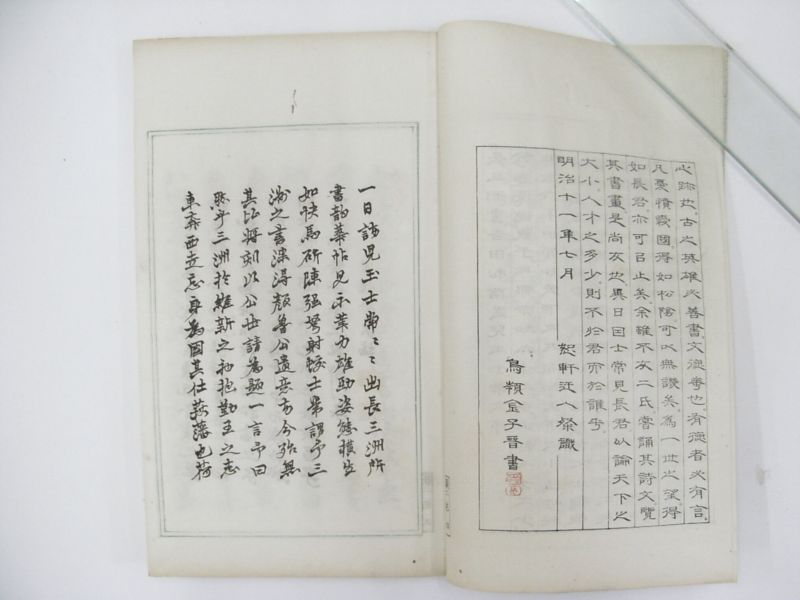 心跡也古之英雄必善書文德華也有德者必有言
凡憂憤義國得如松陽可以無譏矣為一世之望得
如長君亦可㠯止矣余雖不友二氏嘗誦其詩文覽
其書畫是尚友也異日因士常見長君以論天下之
大小人才之多少則不於君而於誰乎
明治十一年七月 恕軒迂人粲識
金子晉書
一日訪児玉士常〻〻出長三洲所
書韵華帖見示筆力雄勁姿態橫生
如快馬斫陣强弩射蛟士常謂予三
洲之書深得顏魯公遺意方今殆無
其比将刻以公世請為題一言予曰
然乎三洲於維新之初抱勤王之志
東奔西走忘身為國其仕萩藩也荷